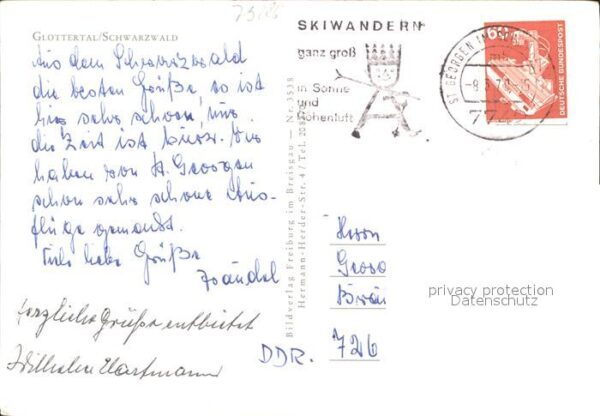 7312
GLOTTERTAL/SCHWARZWALD
Aus dem Schwarzwald
die besten Grüße, es ist
hier sehr schön, nur
die Zeit ist kurz. Wir
haben von St. Georgen
schon sehr schöne Aus-
flüge gemacht.
Viele liebe Grüße
Herzliche Grüße entbietet
Wilhelm Hartmann
Bildverlag Freiburg im Breisgau — Nr. 3538
Hermann-Herder-Str. 4 / Tel. 208
SKIWANDERN
ganz groß
in Sonne
und
Höhenluft
ST GEORGEN
7742
60
DEUTSCHE BUNDESPOST
Herrn
Georg
privacy protection
Datenschutz
DDR. 726